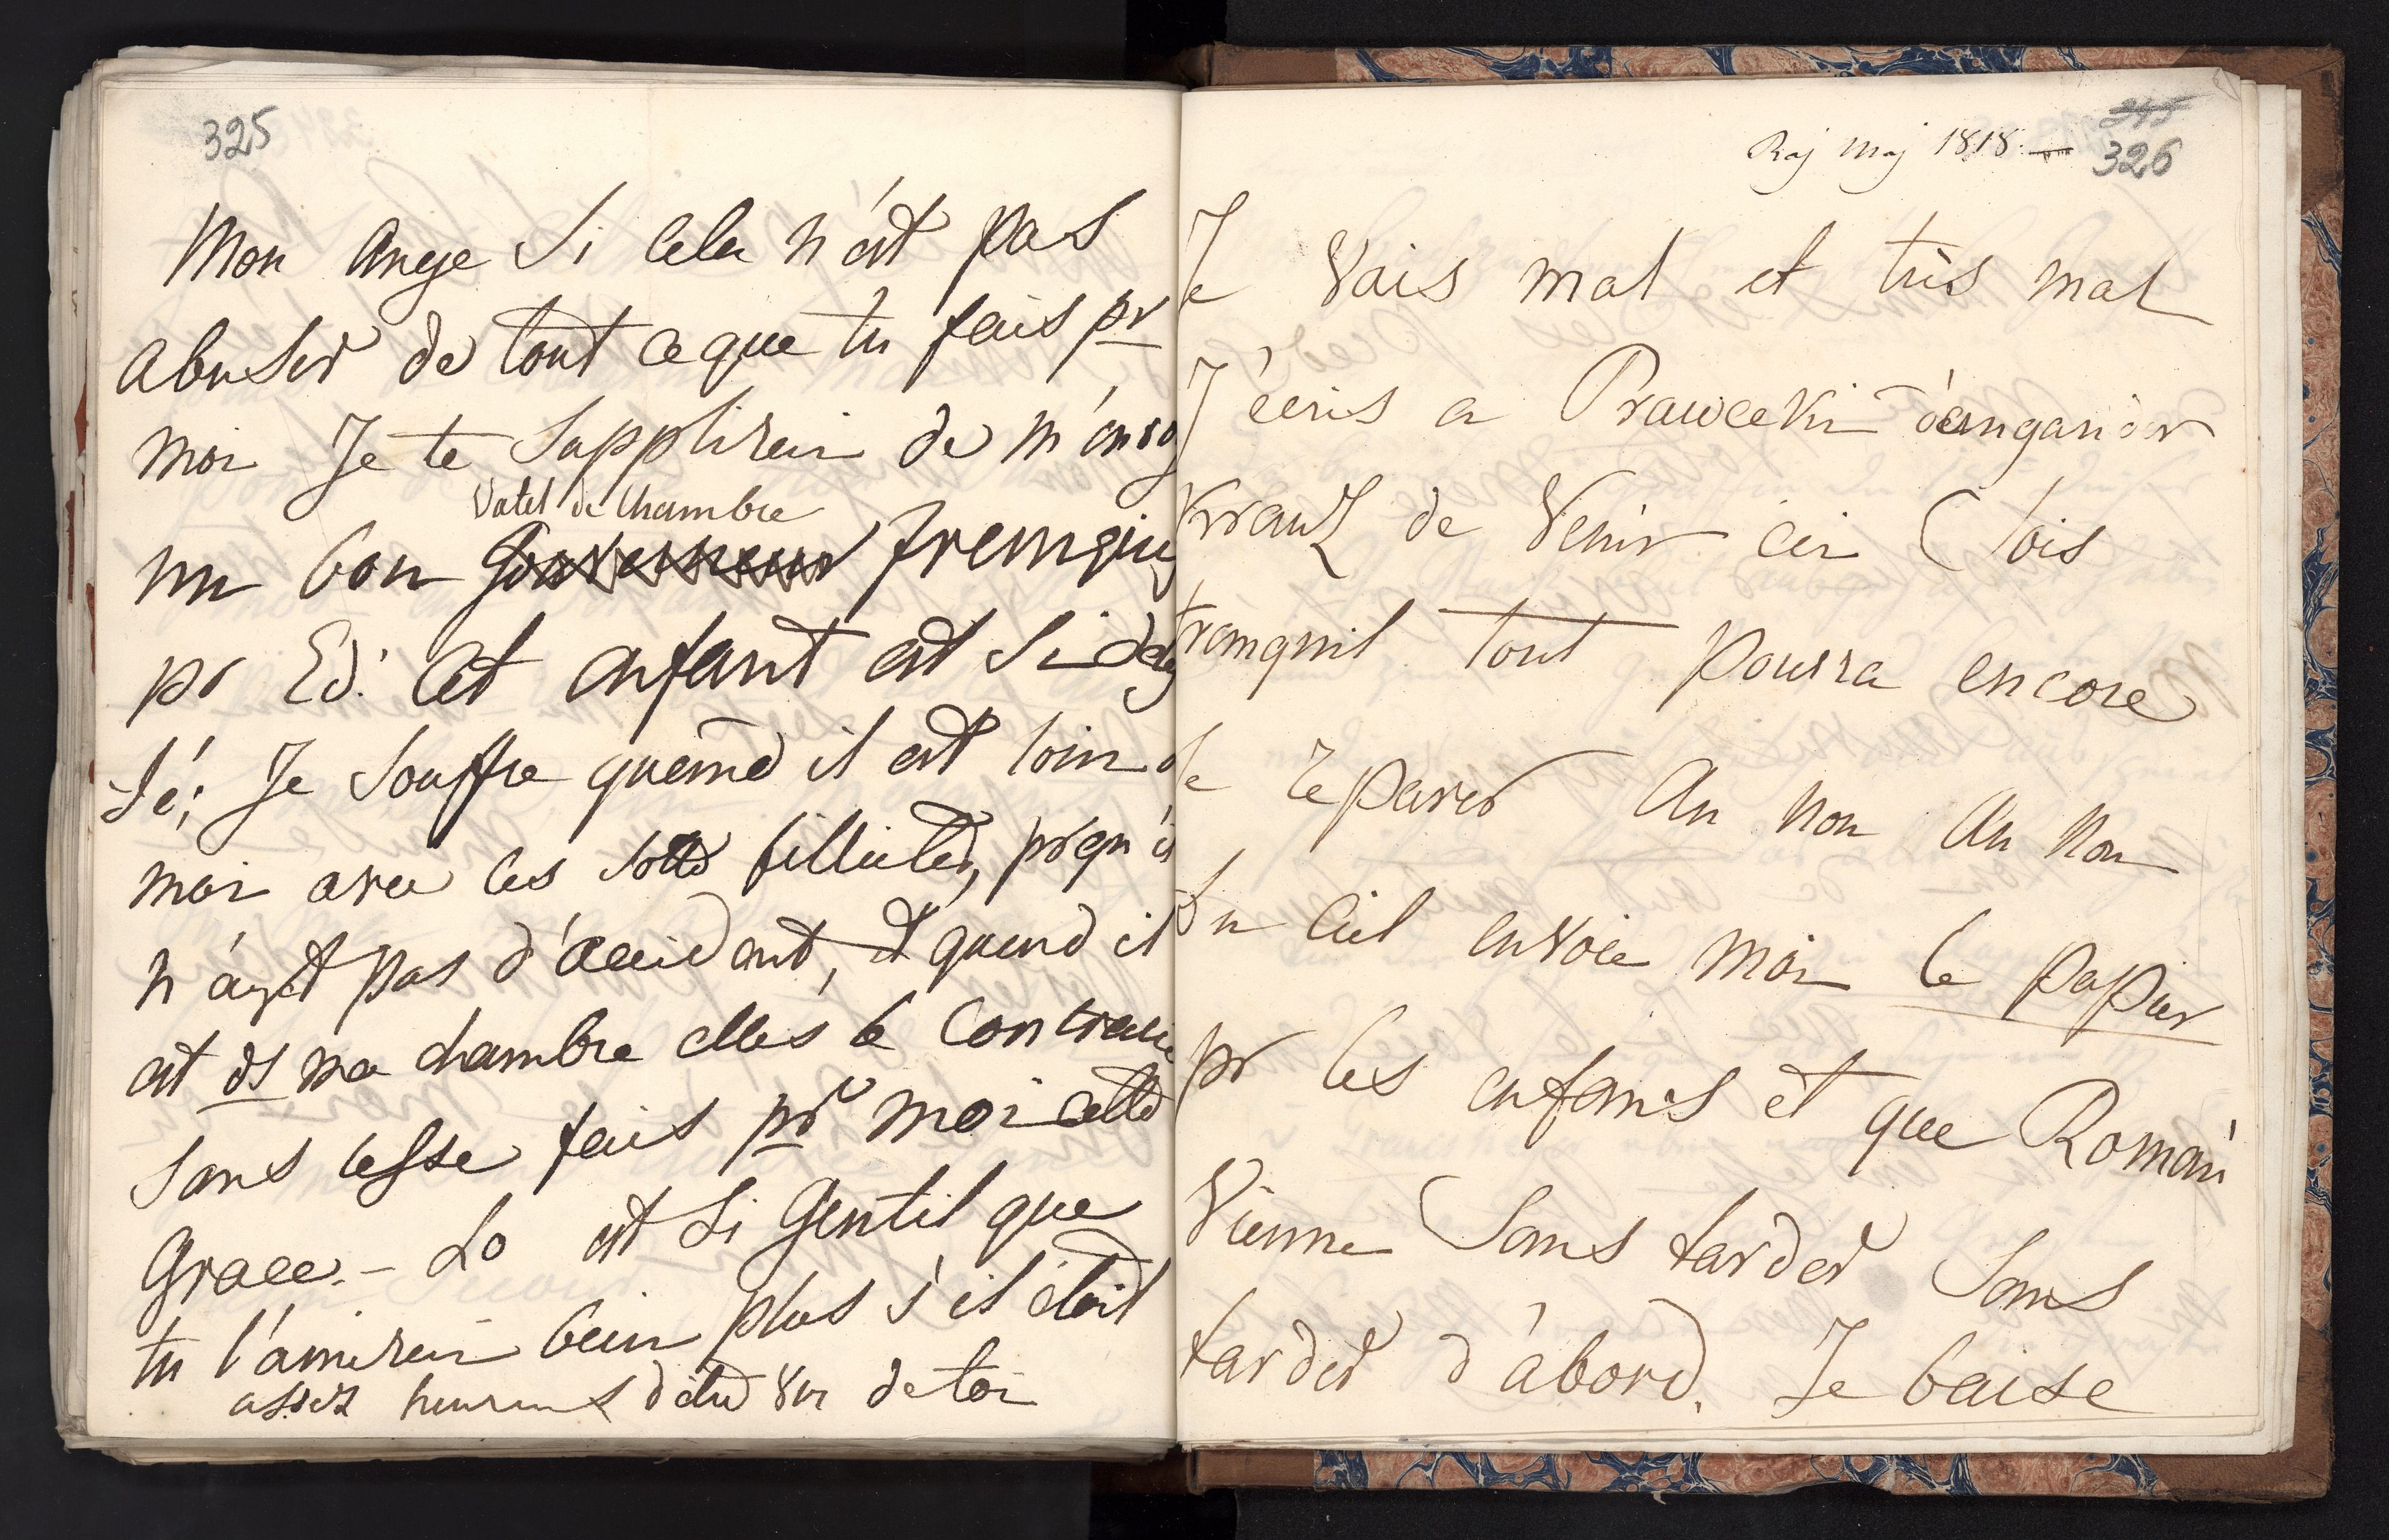 325
Mon Ange si cela n'est pas
abuser de tout ce que tu fais pr
moi Je te supplirai de m'envoy
Valet de Chambre
un bon Gouverneur frençais
pr Ed: Cet enfant est si dely
sé; Je souffre quand il est loin de
moi avec ces sottes filliettes, prqu'il
n'ayet pas d'accident, et quend il
est ds ma chambre elles le contrarie
sans cesse fais pr moi cette
Grace. – Lo est si Gentil que
tu l'aimerai bein plus s'il étoit
assez heureux d'être vu de toi
Raj Maj 1818.
245
326
Je Vais mal et très mal
J'écris a Prawecki d'angarider
Krauz de Venir ici Sois
tranquil tout pourra encore
se reparer Au non Au Non
du Ciel envoie moi le papier
pr les enfans et que Romain
Vienne Sans tarder Sans
tarder d'abord. Je baise